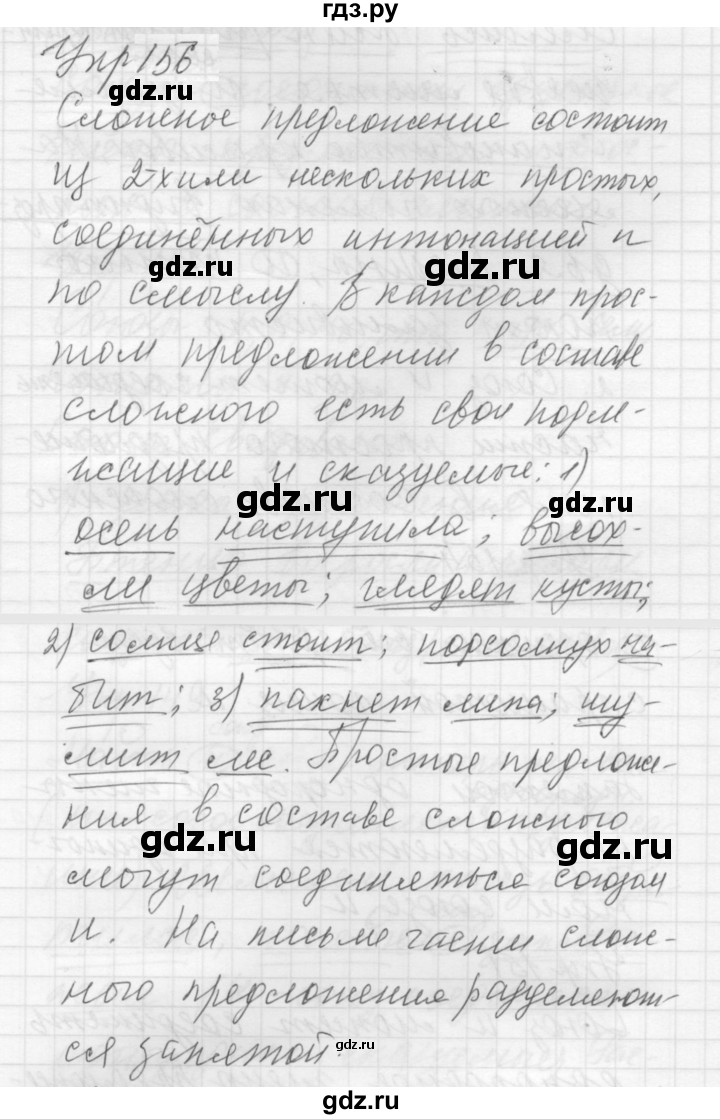 гдз.ру
Упр 156
gdz.ru
Сложное предложение состоит
из 2-х или нескольких простых,
соединённых интонацией и
gdz.ru
gdz.ru
по смыслу. В каждом прос-
том предложении в составе
сложного есть свои подле-
жащие и сказуемые: 1)
gdz.ru
gdz.ru
осень наступила; высох-
ли цветы; глядят кусты;
2) солнце стоит; подсолнух на-
бит; 3) пахнет липа; шу-
мит лес. Простые предложе-
ния в составе сложного
gdz.ru
gdz.ru
могут соединяться союзом
и. На письме части слож-
ного предложения разделяют-
ся запятой.
gdz.ru
gdz.ru